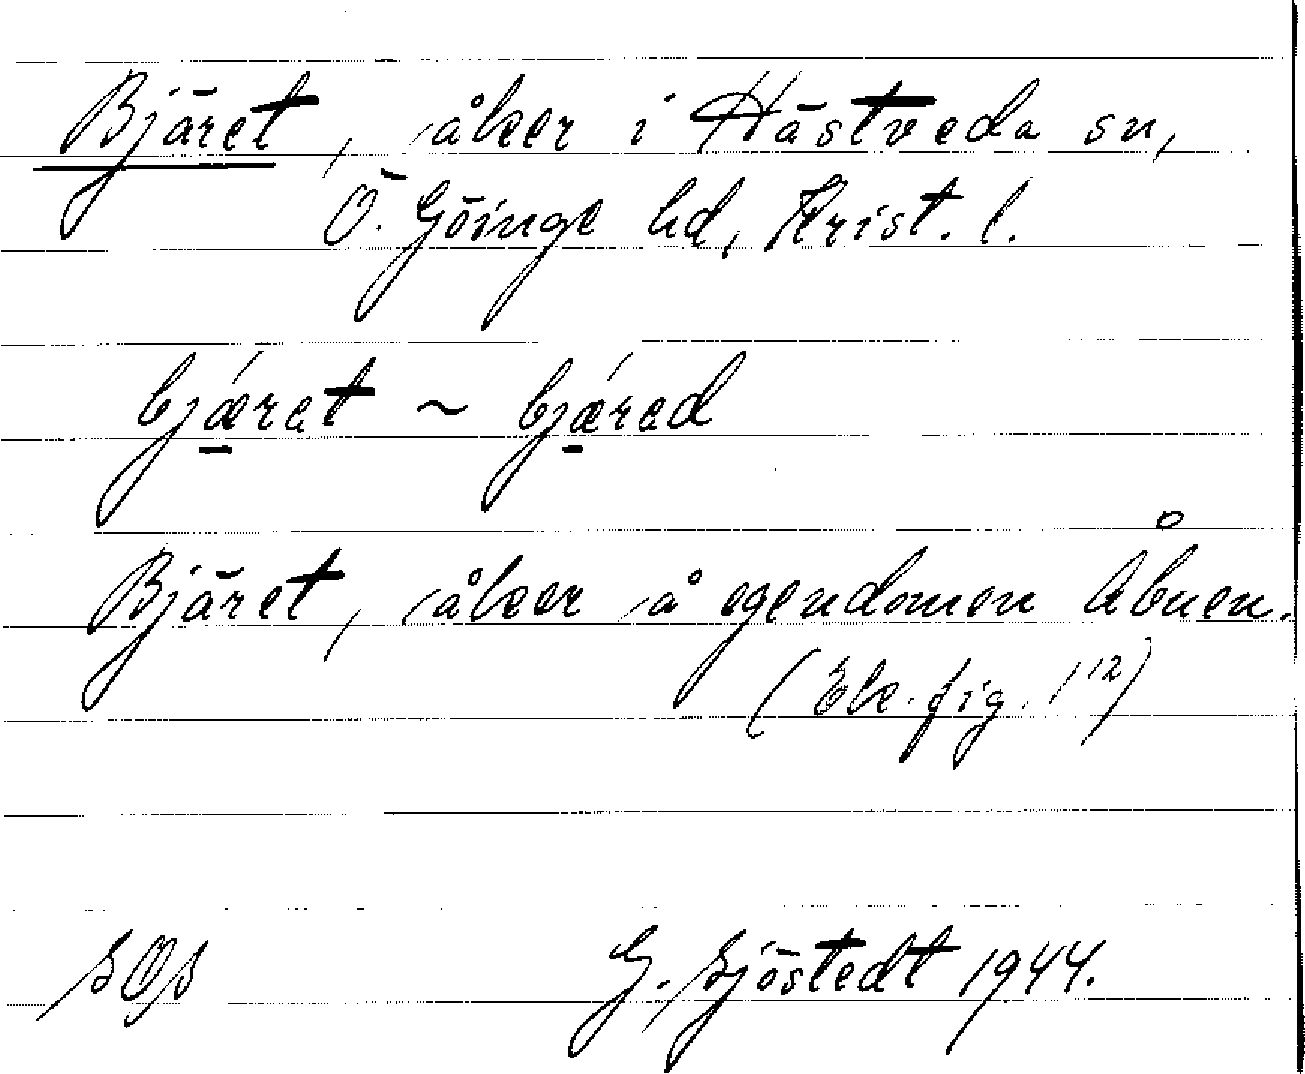 Bjäret, åker i Hästveda sn,
Ö. Göinge hd, Krist. l.
bjǽret ~ bjǽred
Bjäret, åker å egendomen Åbuen.
(Ek. fig. 1¹²)
SOs
G. Sjöstedt 1944.